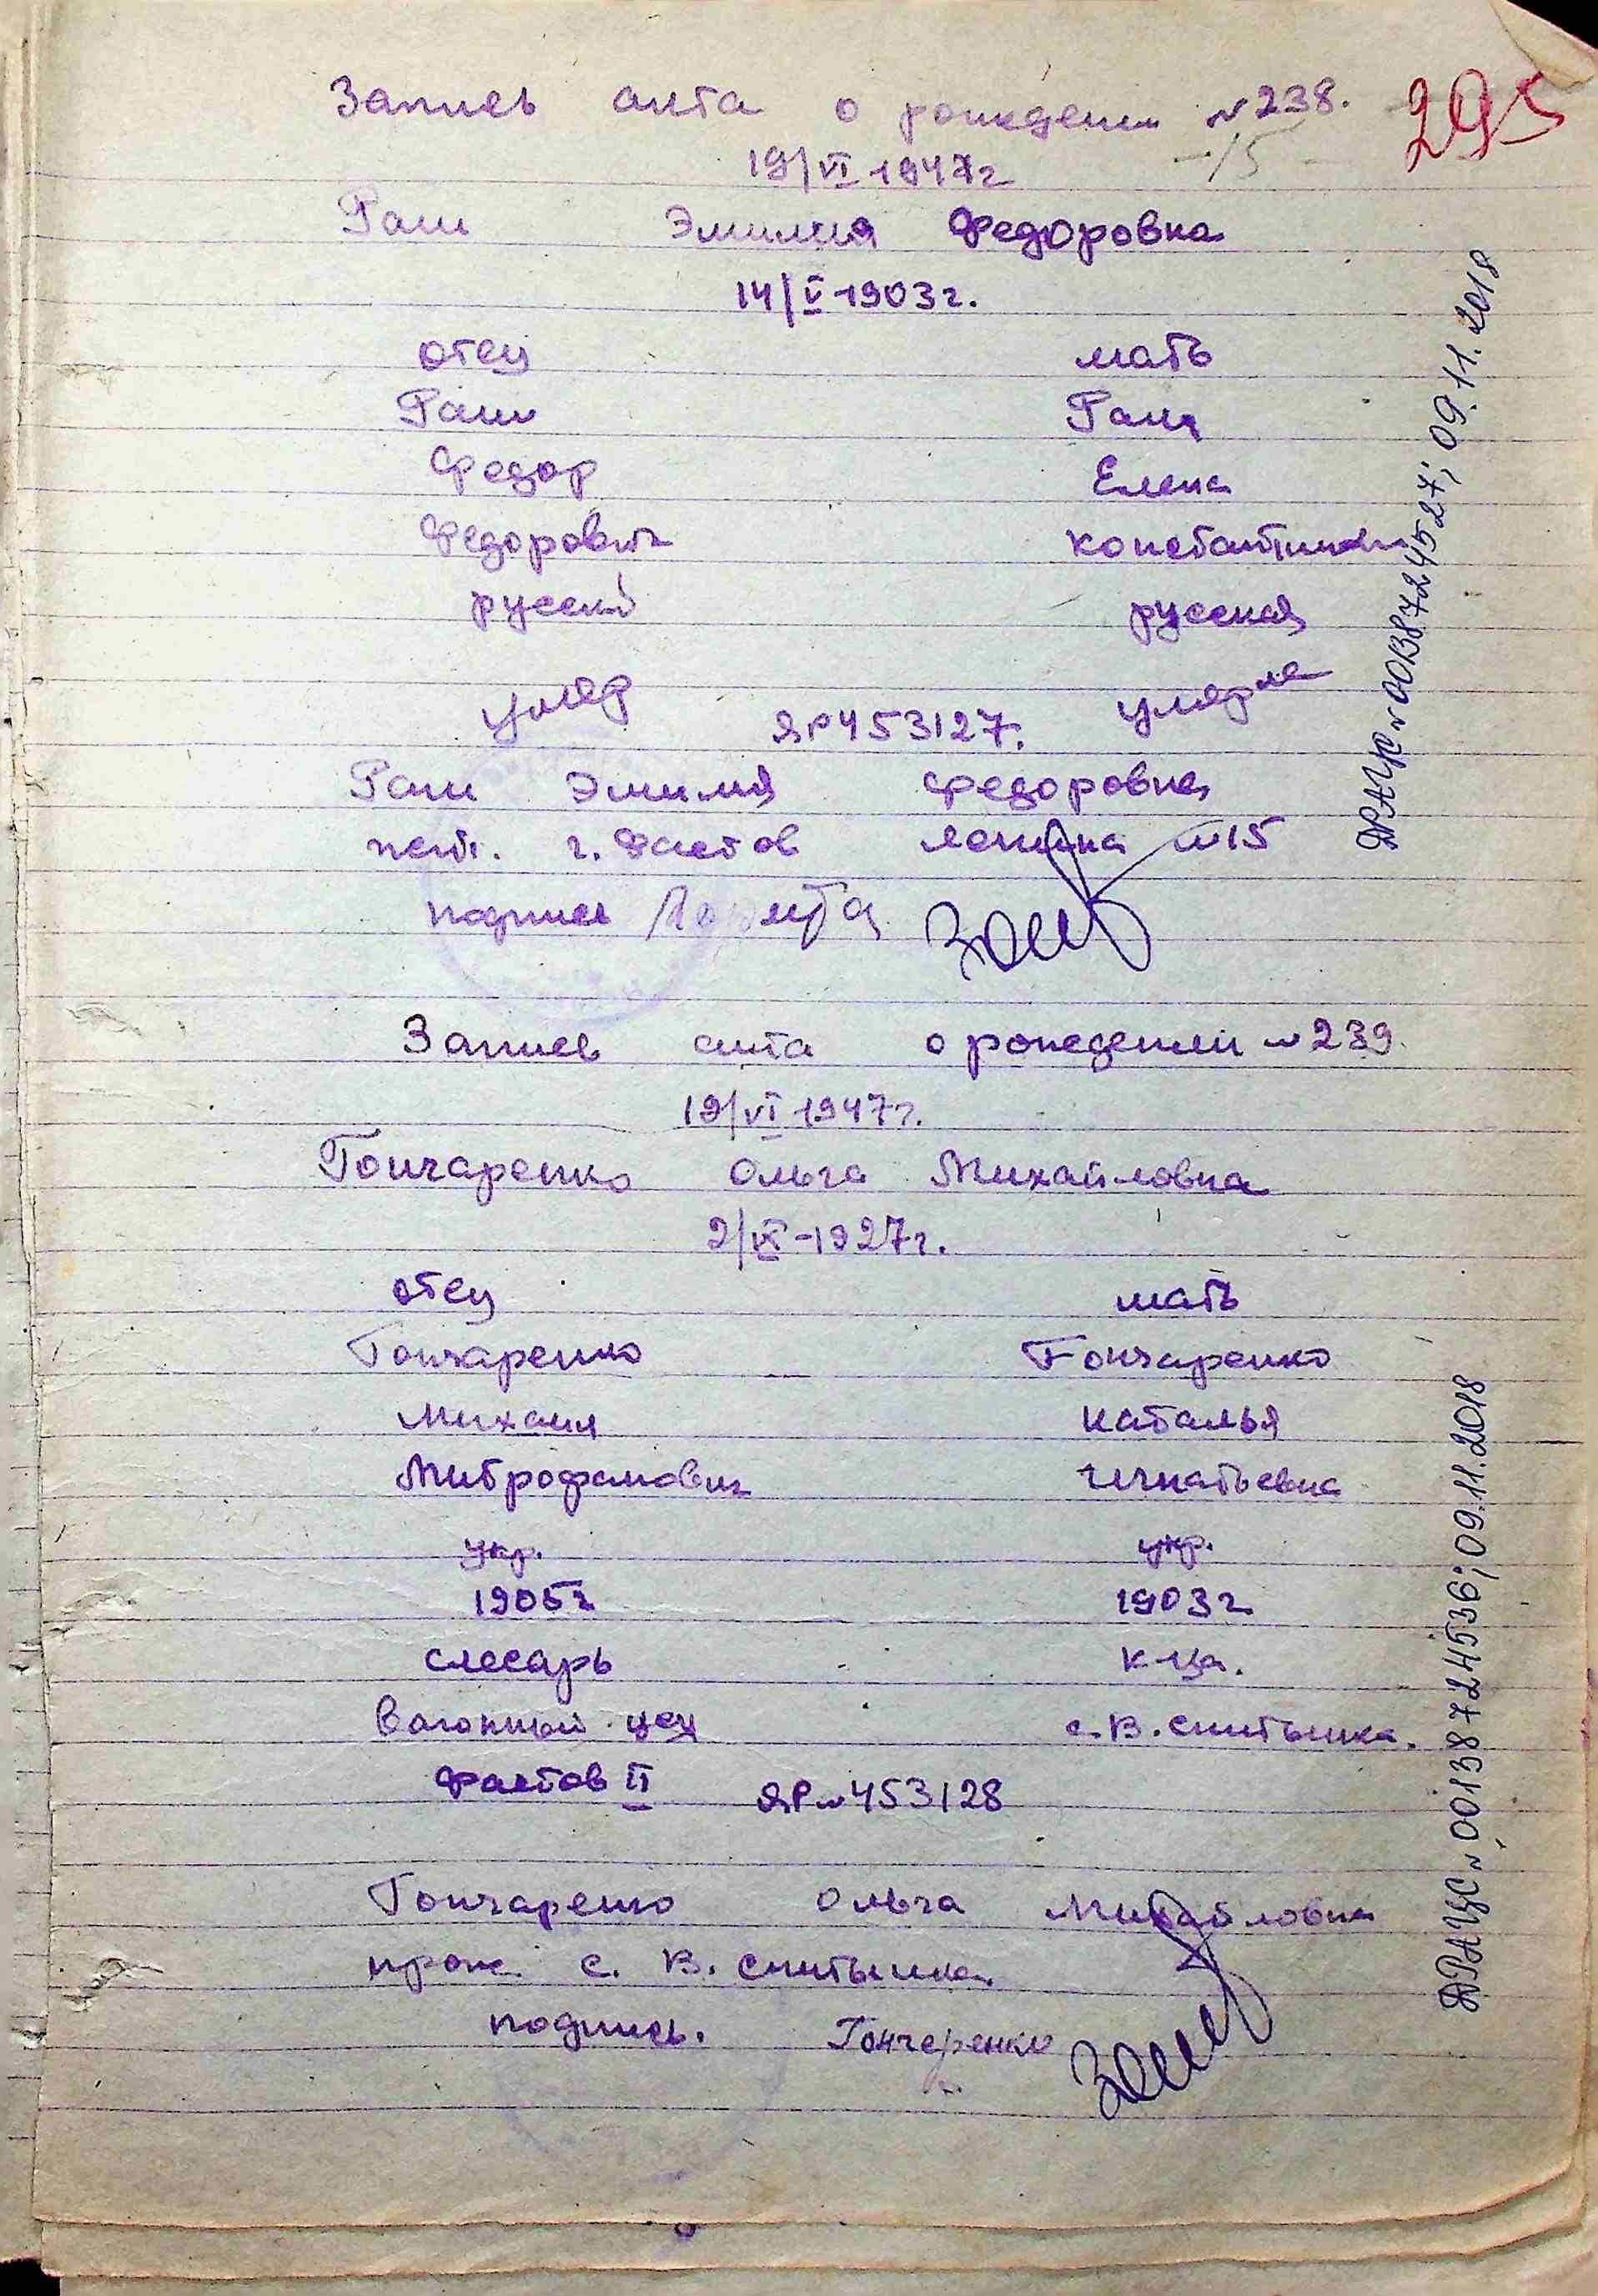 Запись акта о рождении №238. 295
19/VI 1947г -15-
Эмилия Федоровна
14/V-1903г.
отец мать
Федор Елена
Федорович Константиновн
русский русская
умер ЯР453127. умерла
Эмилия Федоровна
г. Фастов Ленина №15
подпись
ДРАЦС №00138724527; 09.11.2018
Запись акта о рождении №239.
19/VI 1947г.
Гончаренко Ольга Михайловна
2/IX-1927г.
отец мать
Гончаренко Гончаренко
Михаил Наталья
Митрофанович Игнатьевна
укр. укр.
1905г 1903г
слесарь к-ца.
Вагонный цех с. В. Снитынка.
Фастов II ЯР №453128
Гончаренко Ольга Михайловна
прож. с. В. Снитынка.
подпись. Гончаренко
ДРАЦС №00138724536; 09.11.2018